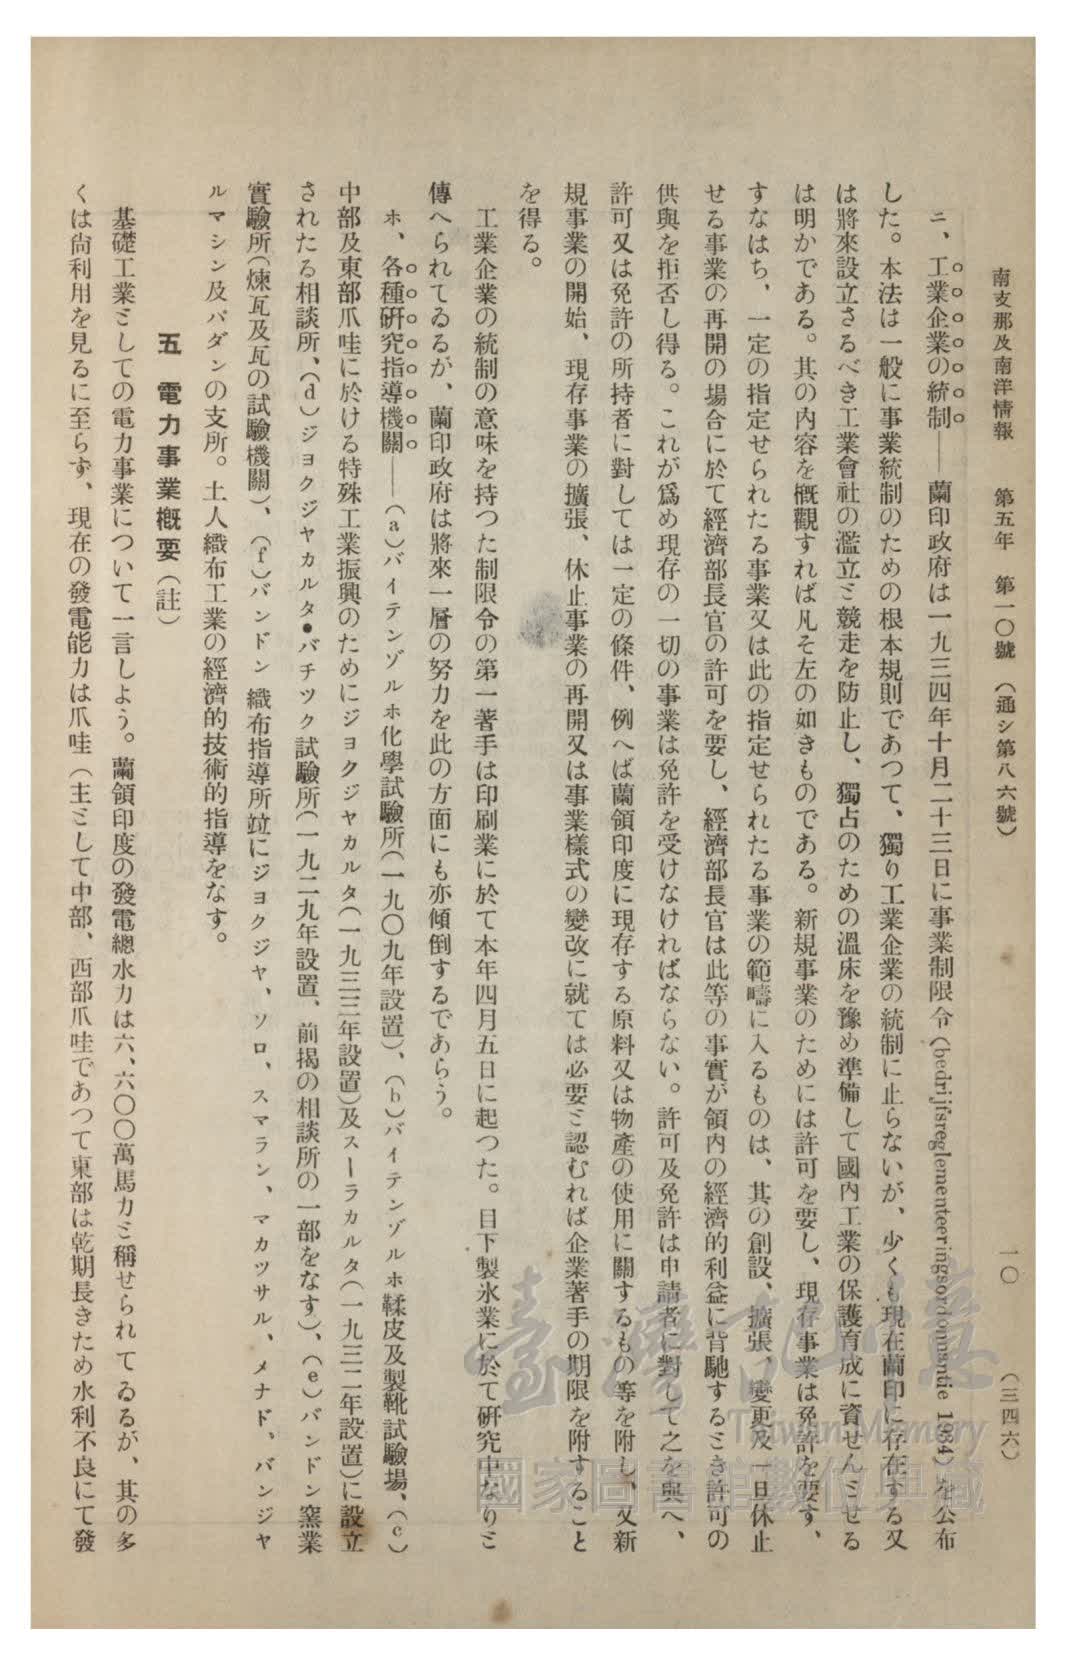 南支那及南洋情報　第五年　第一〇號　（通シ第八六號）　一〇　（三四六）
ニ、工業企業の統制――蘭印政府は一九三四年十月二十三日に事業制限令（bedrijfsreglementeeringsordonnantie 1934）を公布
した。本法は一般に事業統制のための根本規則であつて、獨り工業企業の統制に止らないが、少くも現在蘭印に存在する又
は將來設立さるべき工業會社の濫立ミ競走を防止し、獨占のための溫床を豫め準備して國內工業の保護育成に資せんミせる
は明かである。其の內容を槪觀すれば凡そ左の如きものである。新規事業のためには許可を要し、現存事業は免許を要す、
すなはち、一定の指定せられたる事業又は此の指定せられたる事業の範疇に入るものは、其の創設、擴張、變更及一旦休止
せる事業の再開の場合に於て經濟部長官の許可を要し、經濟部長官は此等の事實が領內の經濟的利益に背馳するミき許可の
供與を拒否し得る。これが爲め現存の一切の事業は免許を受けなければならない。許可及免許は申請者に對して之を與へ、
許可又は免許の所持者に對しては一定の條件、例へば蘭領印度に現存する原料又は物產の使用に關するもの等を附し、又新
規事業の開始、現存事業の擴張、休止事業の再開又は事業樣式の變改に就ては必要ミ認むれば企業著手の期限を附すること
を得る。
工業企業の統制の意味を持つた制限令の第一著手は印刷業に於て本年四月五日に起つた。目下製氷業に於て硏究中なりミ
傳へられてゐるが、蘭印政府は將來一層の努力を此の方面にも亦傾倒するであらう。
ホ、各種硏究指導機關――（a）バイテンゾルホ化學試驗所（一九〇九年設置）、（b）バイテンゾルホ鞣皮及製靴試驗場、（c）
中部及東部爪哇に於ける特殊工業振興のためにジヨクジヤカルタ（一九三三年設置）及スーラカルタ（一九三二年設置）に設立
されたる相談所、（d）ジヨクジヤカルタ●バチツク試驗所（一九二九年設置、前揭の相談所の一部をなす）、（e）バンドン窯業
實驗所（煉瓦及瓦の試驗機關）、（f）バンドン 織布指導所竝にジヨクジヤ、ソロ、スマラン、マカツサル、メナド、バンジヤ
ルマシン及パダンの支所。土人織布工業の經濟的技術的指導をなす。
五　電力事業槪要（註）
基礎工業ミしての電力事業について一言しよう。蘭領印度の發電總水力は六、六〇〇萬馬力ミ稱せられてゐるが、其の多
くは尙利用を見るに至らず、現在の發電能力は爪哇（主ミして中部、西部爪哇であつて東部は乾期長きため水利不良にて發
臺灣記憶
Taiwan Memory
國家圖書館數位典藏